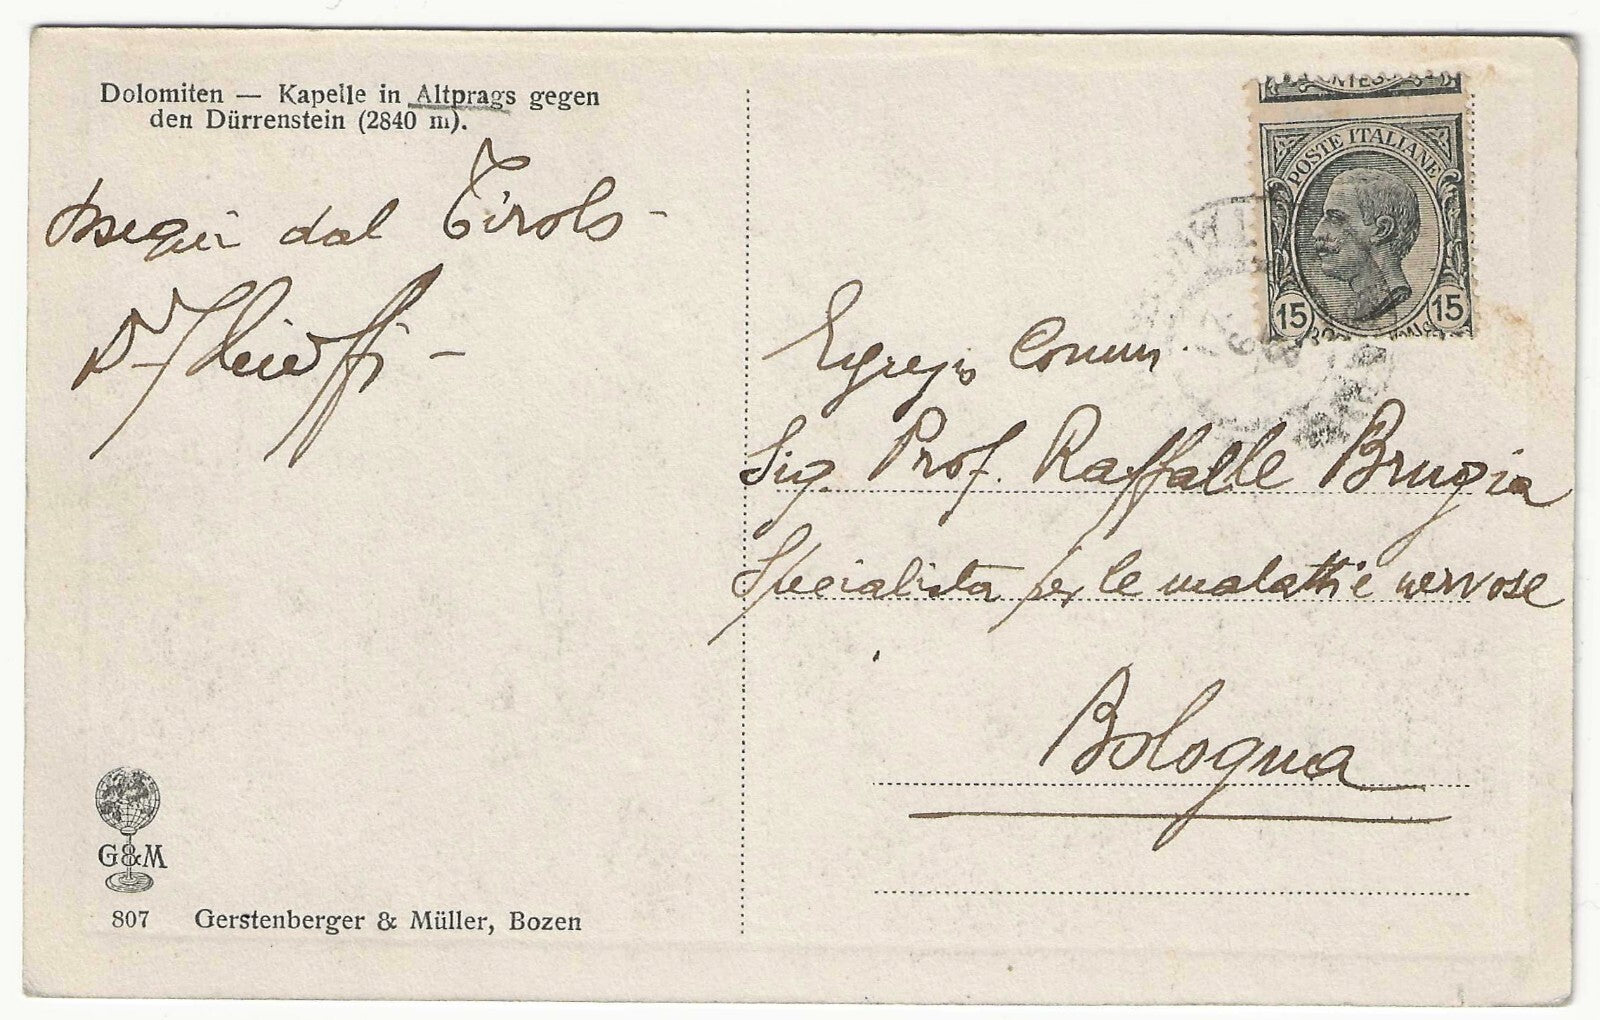 Dolomiten — Kapelle in Altprags gegen
den Dürrenstein (2840 m).
Ossequi dal Tirolo -
POSTE ITALIANE
15 15
Egregio Comm.
Sig. Prof. Raffaele Brugia
Specialista per le malattie nervose
Bologna
G&M
807 Gerstenberger & Müller, Bozen